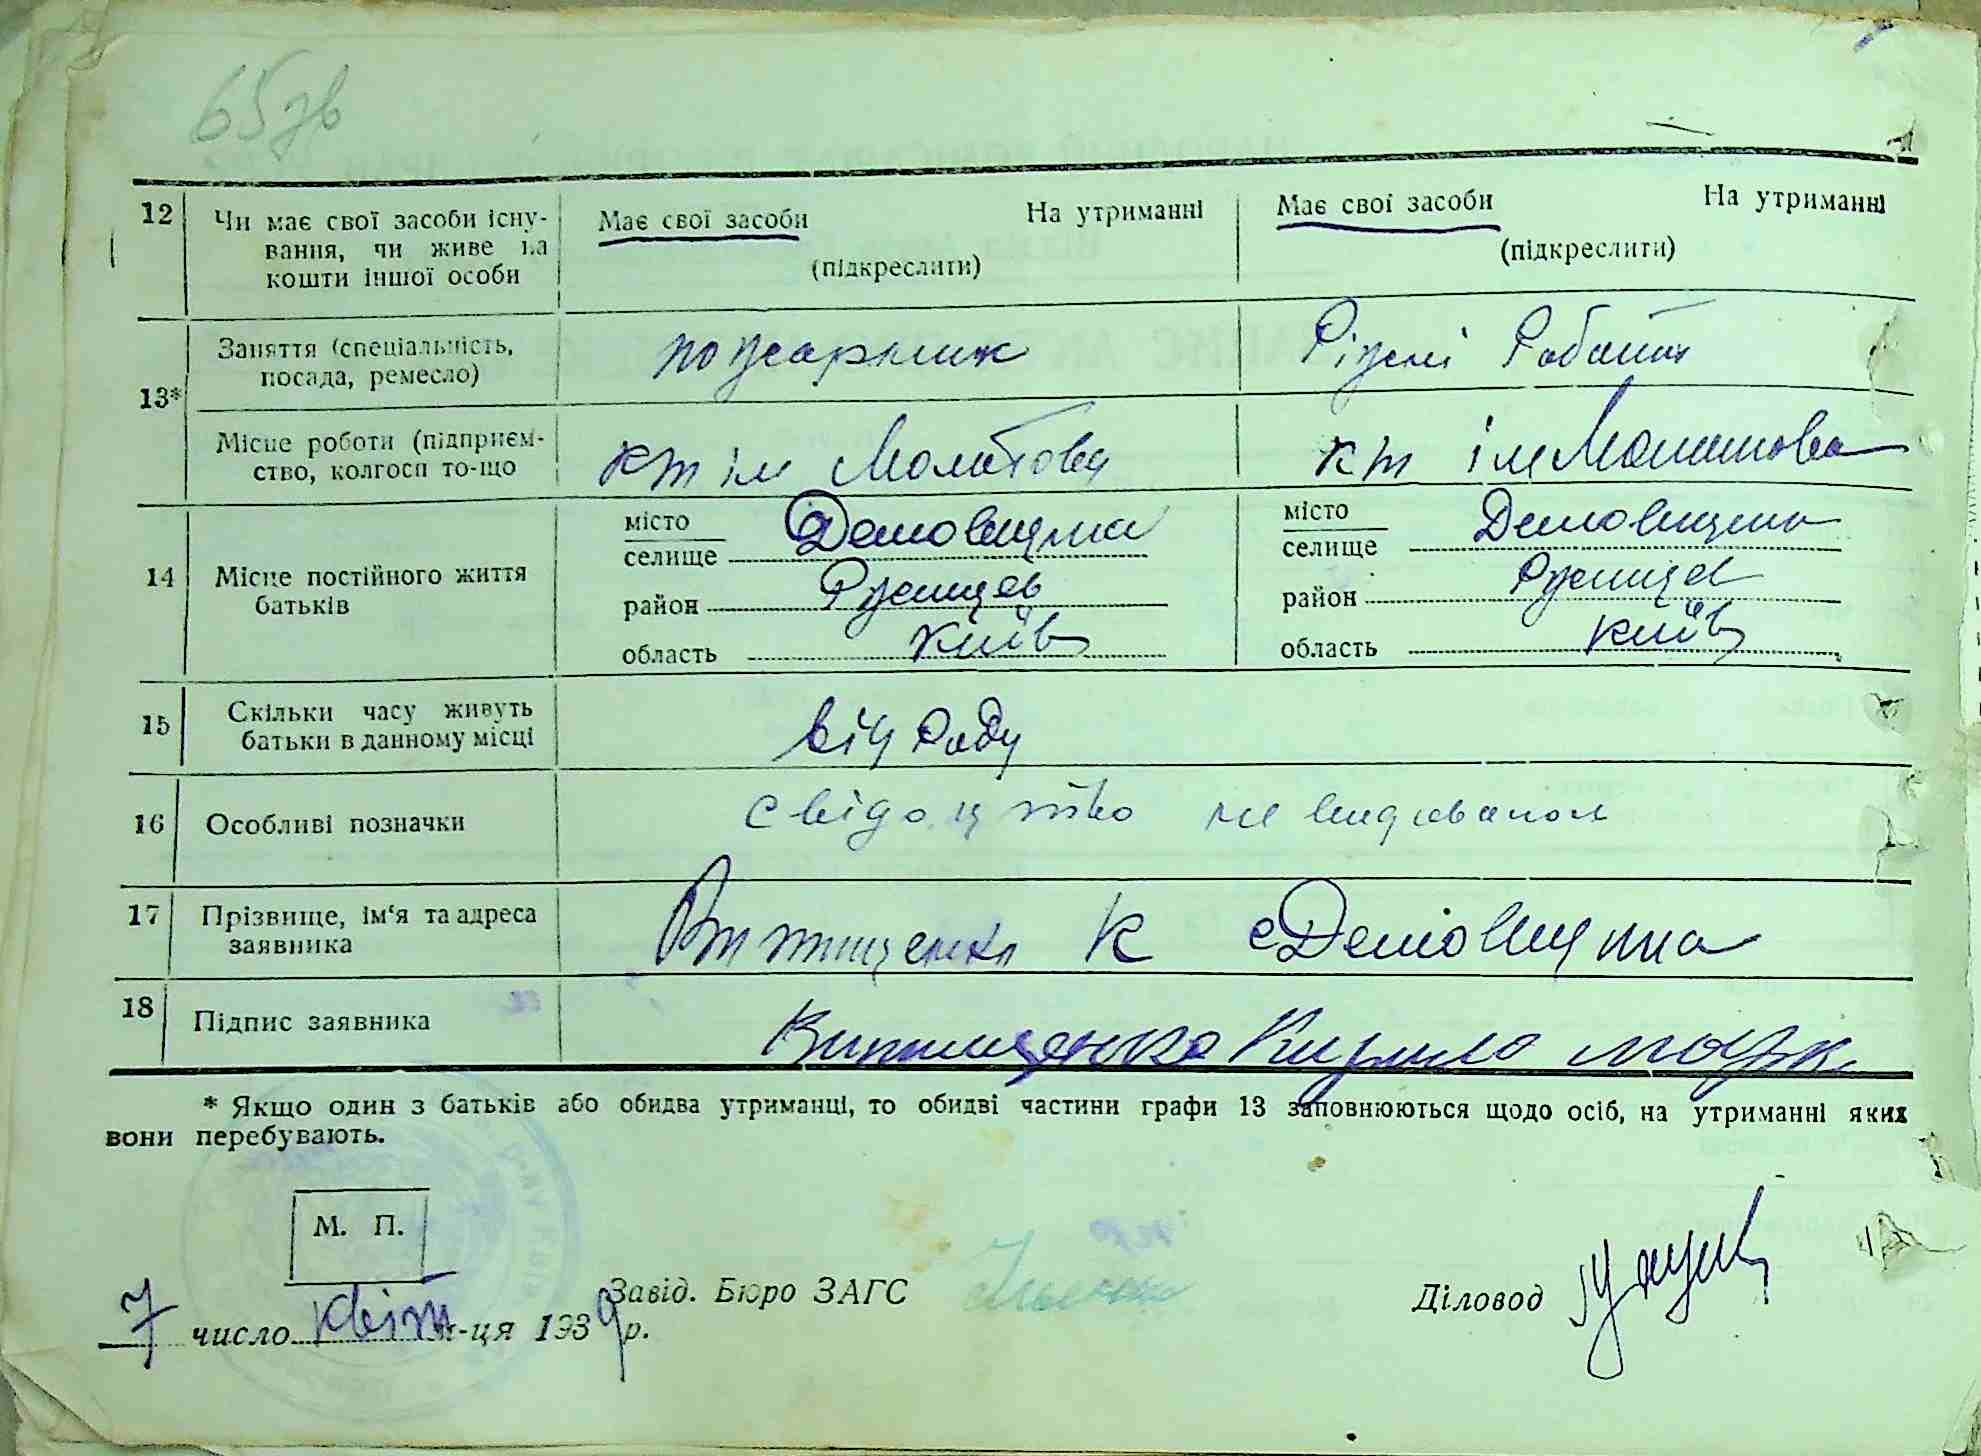 65зв
12 Чи має свої засоби існу- Має свої засоби На утриманні Має свої засоби На утриманні
вання, чи живе на (підкреслити) (підкреслити)
кошти іншої особи
Заняття (спеціальність, пожарник Ріжні Роботи
посада, ремесло)
13*
Місце роботи (підприєм- кт ім Молотова кт ім Молотова
ство, колгосп то-що
місто Демовщина місто Демовщина
селище селище
14 Місце постійного життя район Ржищев район Ржищев
батьків
область Київ область Київ
15 Скільки часу живуть від Роду
батьки в данному місці
16 Особливі позначки свідоцтво не видавалось
17 Прізвище, ім‘я та адреса К с Демовщина
заявника
18 Підпис заявника Кирило Марк
* Якщо один з батьків або обидва утриманці, то обидві частини графи 13 заповнюються щодо осіб, на утриманні яких
вони перебувають.
М. П.
Завід. Бюро ЗАГС Діловод
7 число квіт м-ця 1939 р.